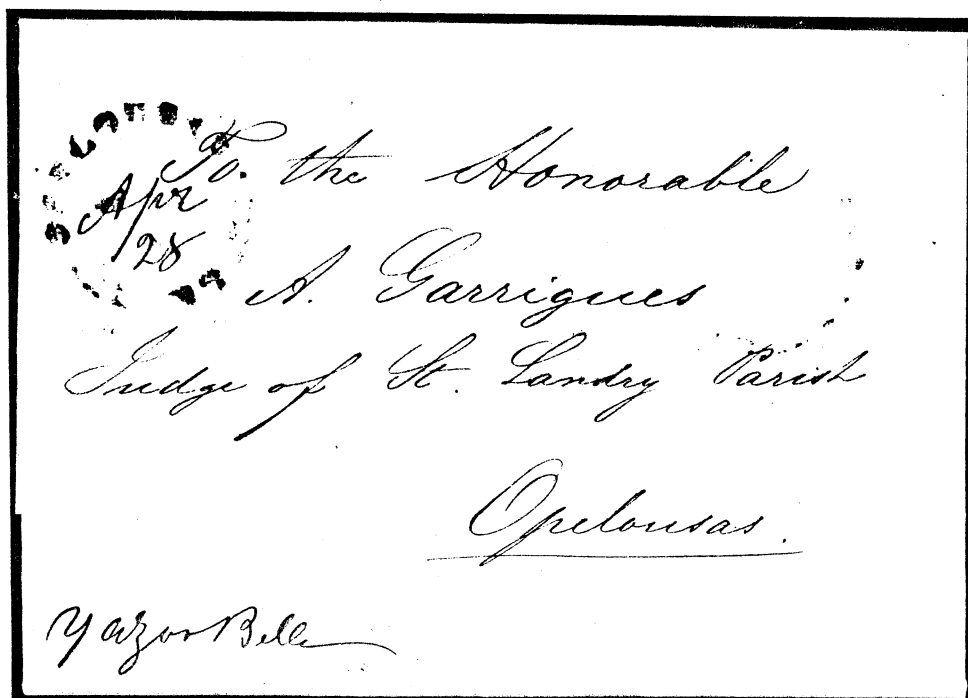 To. the Honorable
Apr
28
A. Garrigues
Judge of St. Landry Parish
Opelousas.
Yazoo Belle